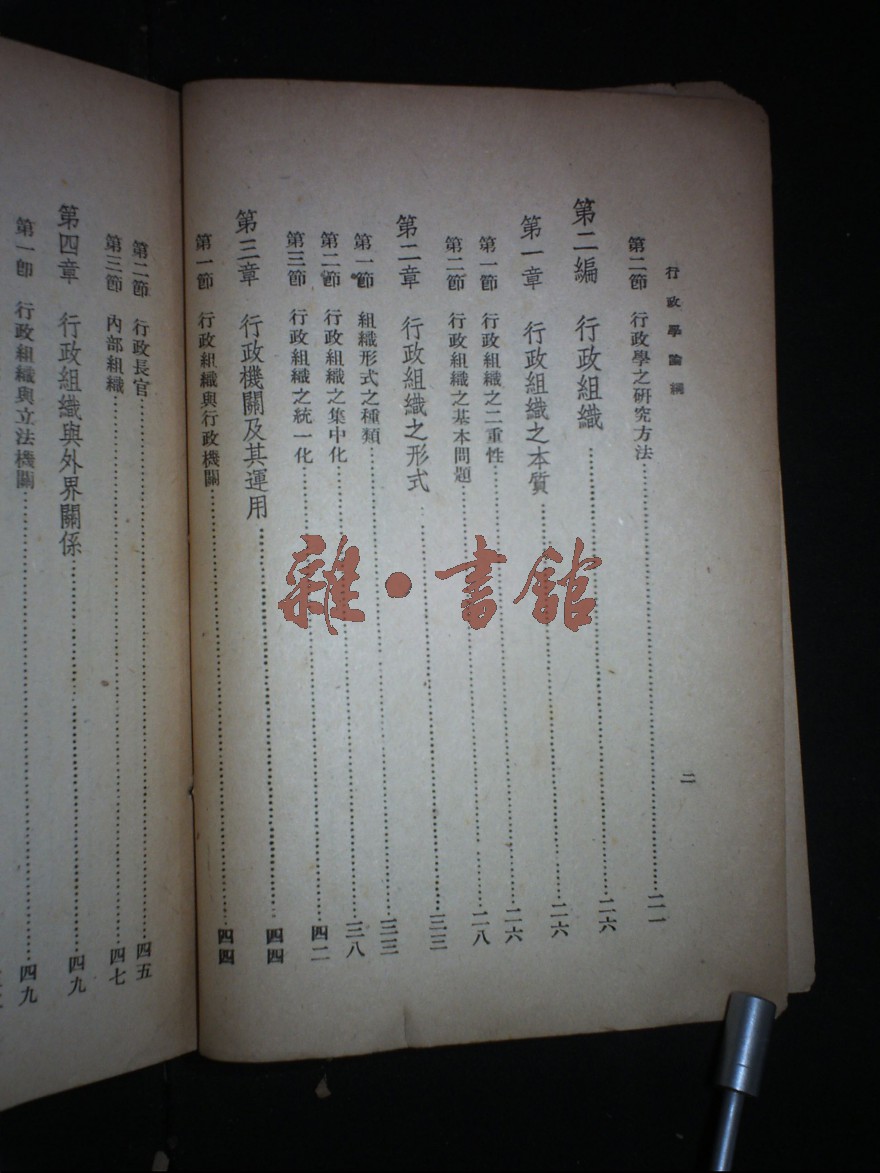 行政學論綱
二
第二節 行政學之研究方法……二一
第二編 行政組織……二六
第一章 行政組織之本質……二六
第一節 行政組織之二重性……二六
第二節 行政組織之基本問題……二八
第二章 行政組織之形式……三三
第一節 組織形式之種類……三三
第二節 行政組織之集中化……三八
第三節 行政組織之統一化……四二
第三章 行政機關及其運用……四四
第一節 行政組織與行政機關……四四
第二節 行政長官……四五
第三節 內部組織……四七
第四章 行政組織與外界關係……四九
第一節 行政組織與立法機關……四九
雜·書館